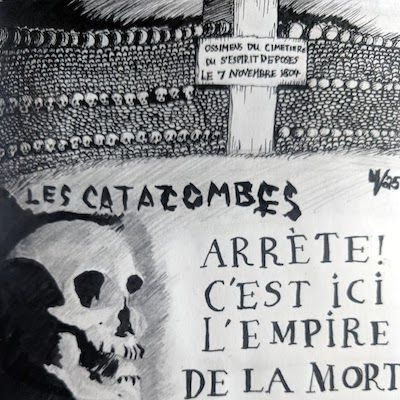 OSSIMENS DU CIMETIERE
DU S'ESPRIT DEPOSES
LE 7 NOVEMBRE 1804
LES CATACOMBES
ARRÈTE!
C'EST ICI
L'EMPIRE
DE LA MORT